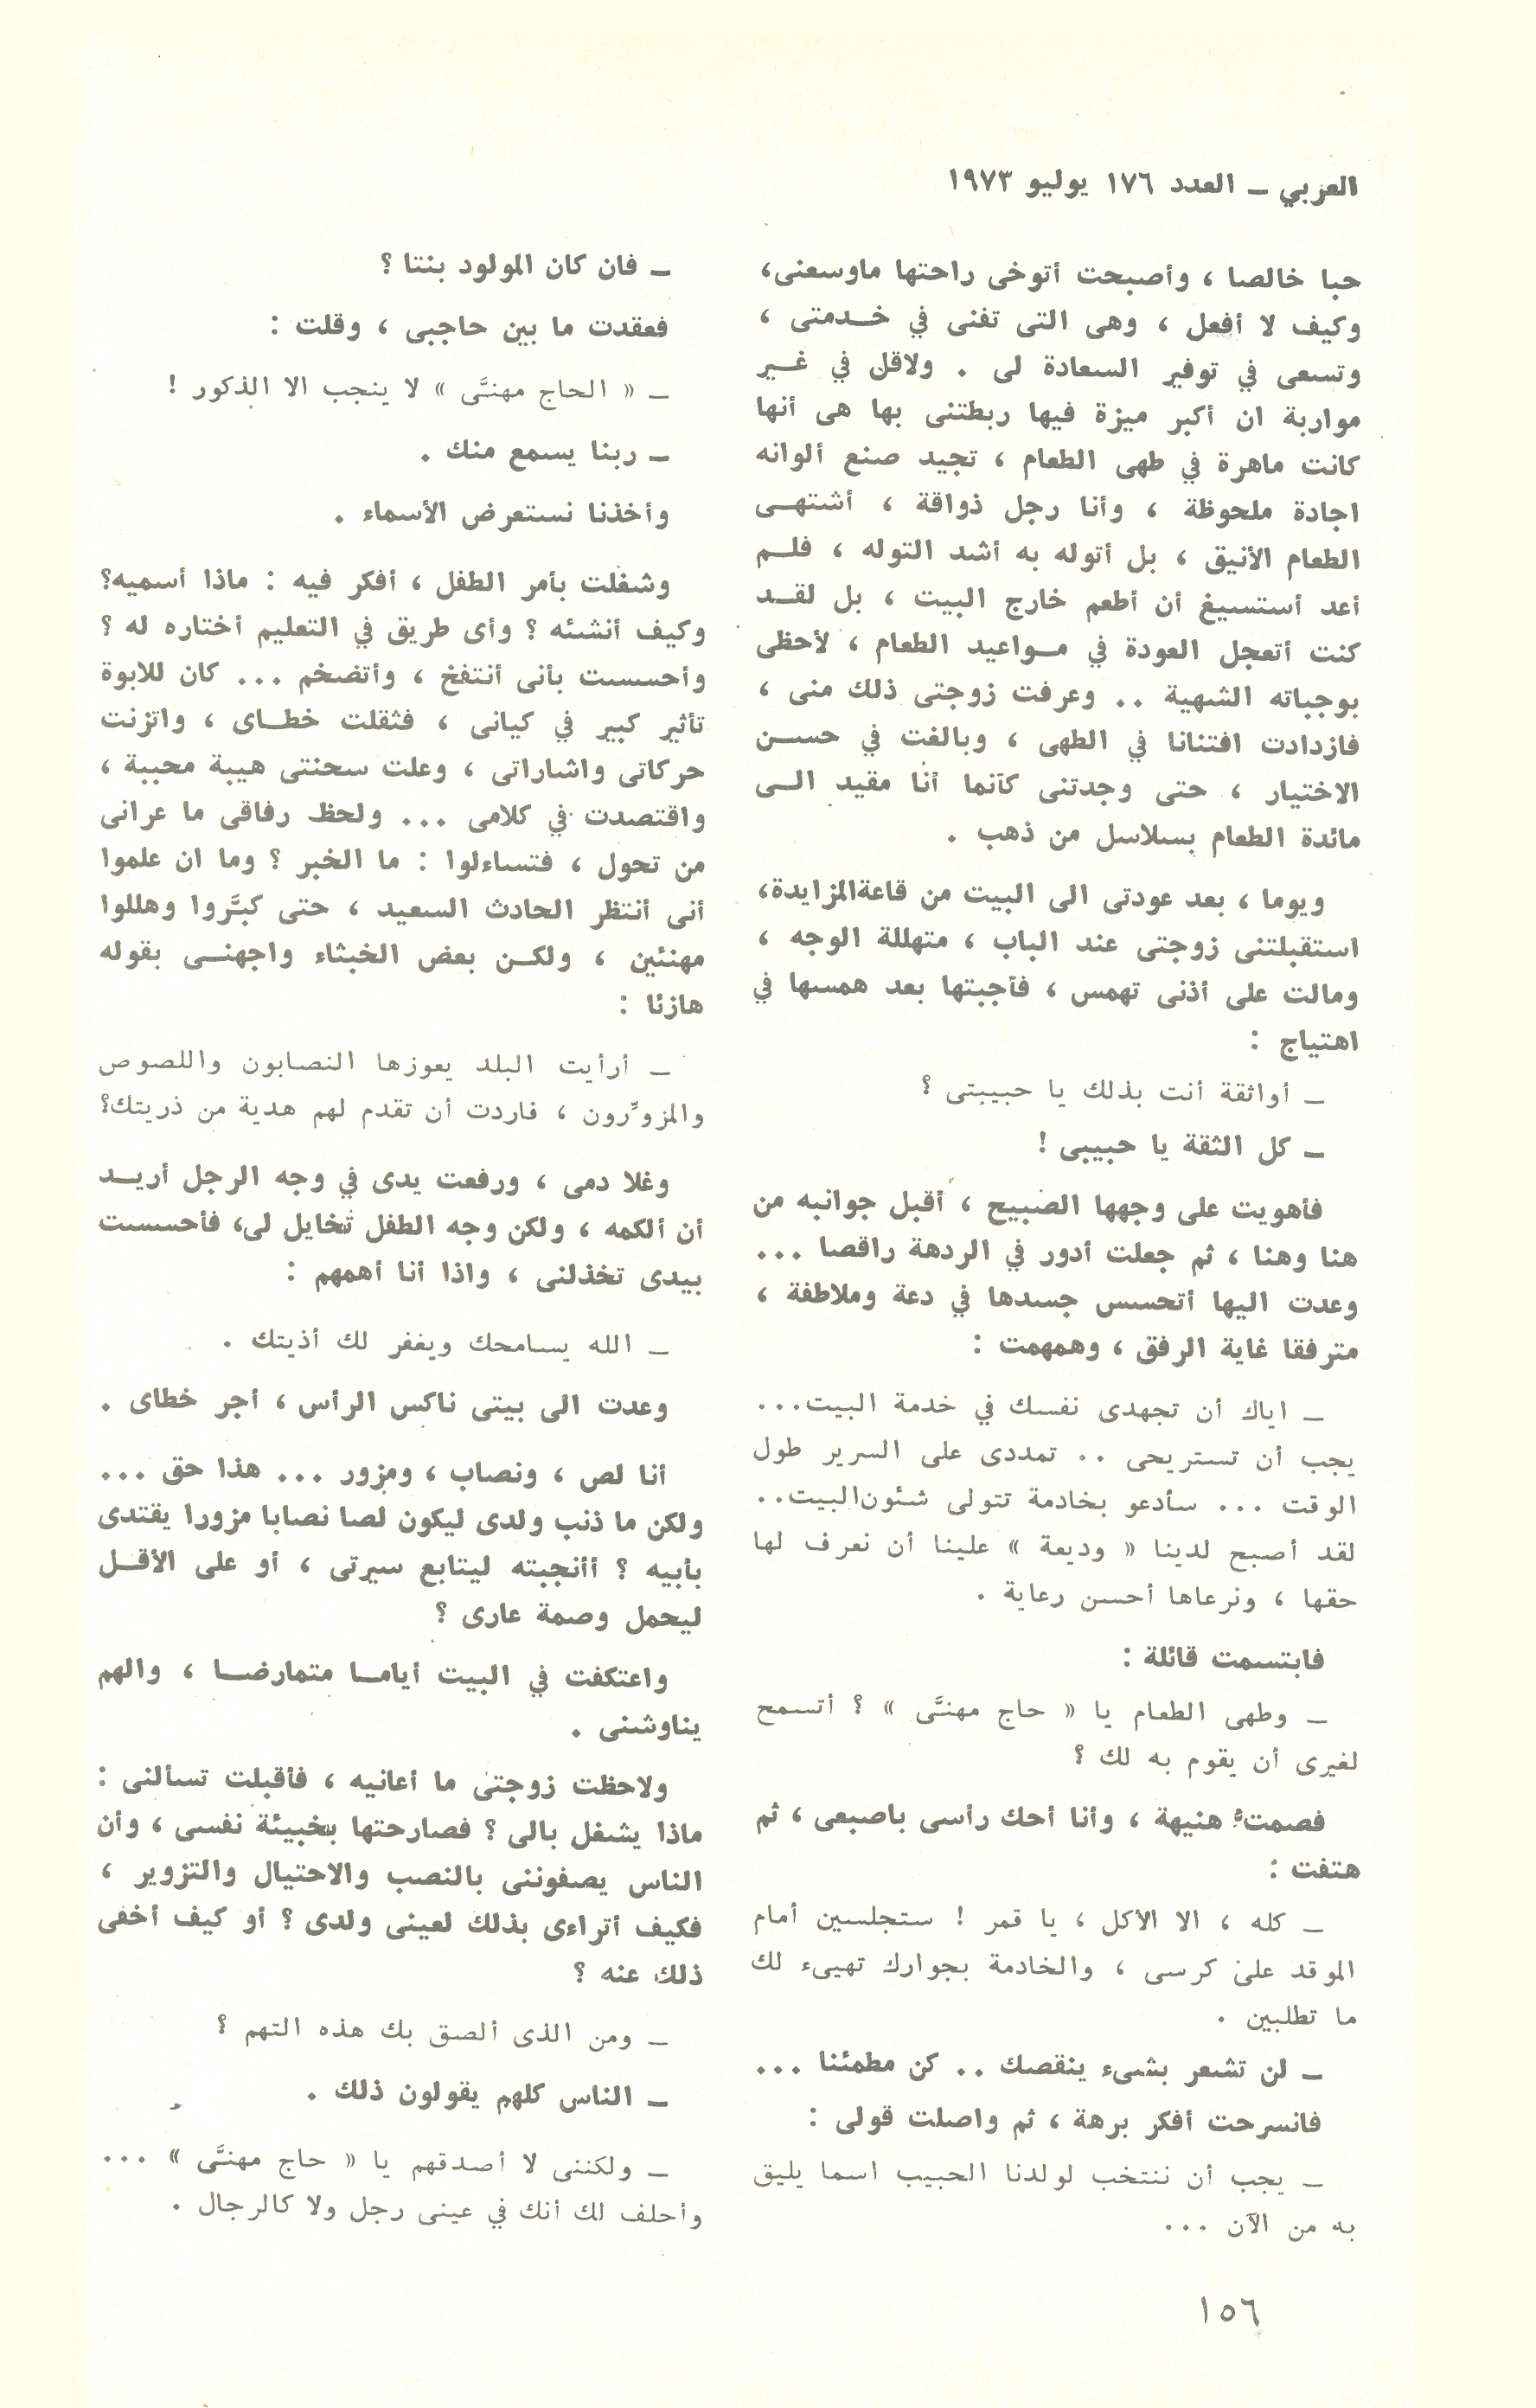 العربي ـ العدد ١٧٦ يوليو ١٩٧٣
حبا خالصا ، وأصبحت أتوخى راحتها ماوسعنى،
وكيف لا أفعل ، وهى التى تفنى في خـدمتى ،
وتسعى في توفير السعادة لى . ولاقل في غـير
مواربة ان أكبر ميزة فيها ربطتنى بها هى أنها
كانت ماهرة في طهى الطعام ، تجيد صنع ألوانه
اجادة ملحوظة ، وأنا رجل ذواقة ، أشتهـى
الطعام الأنيق ، بل أتوله به أشد التوله ، فلـم
أعد أستسيغ أن أطعم خارج البيت ، بل لقـد
كنت أتعجل العودة في مـواعيد الطعام ، لأحظى
بوجباته الشهية .. وعرفت زوجتى ذلك منى ،
فازدادت افتنانا في الطهى ، وبالغت في حسـن
الاختيار ، حتى وجدتنى كأنما أنا مقيد الـى
مائدة الطعام بسلاسل من ذهب .
ويوما ، بعد عودتى الى البيت من قاعةالمزايدة،
استقبلتنى زوجتى عند الباب ، متهللة الوجه ،
ومالت على أذنى تهمس ، فأجبتها بعد همسها في
اهتياج :
ـ أواثقة أنت بذلك يا حبيبتى ؟
ـ كل الثقة يا حبيبى !
فأهويت على وجهها الصبيح ، أقبل جوانبه من
هنا وهنا ، ثم جعلت أدور في الردهة راقصا ...
وعدت اليها أتحسس جسدها في دعة وملاطفة ،
مترفقا غاية الرفق ، وهمهمت :
ـ اياك أن تجهدى نفسك في خدمة البيت...
يجب أن تستريحى .. تمددى على السرير طول
الوقت ... سأدعو بخادمة تتولى شئون‌البيت..
لقد أصبح لدينا « وديعة » علينا أن نعرف لها
حقها ، ونرعاها أحسن رعاية .
فابتسمت قائلة :
ـ وطهى الطعام يا « حاج مهنـَّى » ؟ أتسمح
لغيرى أن يقوم به لك ؟
فصمتُّ هنيهة ، وأنا أحك رأسى باصبعى ، ثم
هتفت :
ـ كله ، الا الأكل ، يا قمر ! ستجلسين أمام
الموقد على كرسى ، والخادمة بجوارك تهيىء لك
ما تطلبين .
ـ لن تشعر بشىء ينقصك .. كن مطمئنا ...
فانسرحت أفكر برهة ، ثم واصلت قولى :
ـ يجب أن ننتخب لولدنا الحبيب اسما يليق
به من الآن ...
ـ فان كان المولود بنتا ؟
فعقدت ما بين حاجبى ، وقلت :
ـ « الحاج مهنـَّى » لا ينجب الا الذكور !
ـ ربنا يسمع منك .
وأخذنا نستعرض الأسماء .
وشغلت بأمر الطفل ، أفكر فيه : ماذا أسميه؟
وكيف أنشئه ؟ وأى طريق في التعليم أختاره له ؟
وأحسست بأنى أنتفخ ، وأتضخم ... كان للابوة
تأثير كبير في كيانى ، فثقلت خطـاى ، واتزنت
حركاتى واشاراتى ، وعلت سحنتى هيبة محببة ،
واقتصدت في كلامى ... ولحظ رفاقى ما عرانى
من تحول ، فتساءلوا : ما الخبر ؟ وما ان علموا
أنى أنتظر الحادث السعيد ، حتى كبـَّروا وهللوا
مهنئين ، ولكـن بعض الخبثاء واجهنـى بقوله
هازئا :
ـ أرأيت البلد يعوزها النصابون واللصوص
والمزوِّرون ، فاردت أن تقدم لهم هدية من ذريتك؟
وغلا دمى ، ورفعت يدى في وجه الرجل أريـد
أن ألكمه ، ولكن وجه الطفل تخايل لى، فأحسست
بيدى تخذلنى ، واذا أنا أهمهم :
ـ الله يسامحك ويغفر لك أذيتك .
وعدت الى بيتى ناكس الرأس ، أجر خطاى .
أنا لص ، ونصاب ، ومزور ... هذا حق ...
ولكن ما ذنب ولدى ليكون لصا نصابا مزورا يقتدى
بأبيه ؟ أأنجبته ليتابع سيرتى ، أو على الأقـل
ليحمل وصمة عارى ؟
واعتكفت في البيت أيامـا متمارضـا ، والهم
يناوشنى .
ولاحظت زوجتى ما أعانيه ، فأقبلت تسألنى :
ماذا يشغل بالى ؟ فصارحتها بخبيئة نفسى ، وأن
الناس يصفوننى بالنصب والاحتيال والتزوير ،
فكيف أتراءى بذلك لعينى ولدى ؟ أو كيف أخفى
ذلك عنه ؟
ـ ومن الذى ألصق بك هذه التهم ؟
ـ الناس كلهم يقولون ذلك .
ـ ولكننى لا أصدقهم يا « حاج مهنـَّى » ...
وأحلف لك أنك في عينى رجل ولا كالرجال .
١٥٦